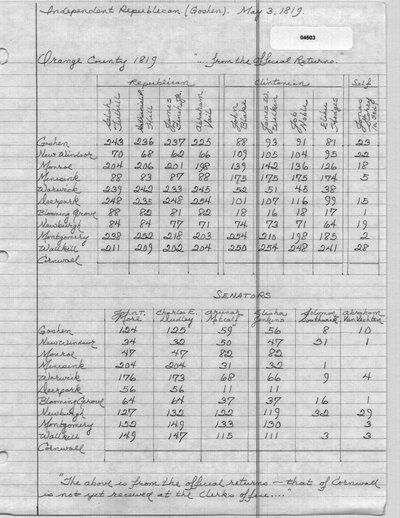 Independent Republican (Goshen). May 3, 1819.
04603
Orange County 1819 "...from the Official Returns."
Republican Clintonian Self
Selah Tuthill Nathaniel P. Hill James Finch Jr. Abraham Vail John Blake James W. Wilkin Job Noble Elihu Hedges
Goshen 243 236 237 225 88 93 91 81 23
New Windsor 70 68 62 66 109 105 104 95 22
Monroe 204 206 201 198 139 142 136 126 18
Minisink 88 83 87 88 175 175 175 174 5
Warwick 239 242 233 245 52 51 45 38
Deerpark 248 235 248 254 101 107 116 99 15
Blooming Grove 88 82 81 82 18 16 18 17 1
Newburgh 84 84 77 71 74 73 71 64 19
Montgomery 238 252 218 203 254 210 198 185 2
Wallkill 211 209 202 204 250 254 248 241 28
Cornwall
SENATORS
John T. More Charles E. Dudley Arunah Metcalf Elisha Jenkins Solomon Southwick Abraham Van Vechten
Goshen 124 125 59 56 8 10
New Windsor 34 32 50 47 31 1
Monroe 47 47 82 82
Minisink 204 204 31 32 1
Warwick 176 173 68 66 9 4
Deerpark 56 56 11 11
Blooming Grove 64 64 37 37 16 1
Newburgh 127 132 122 119 32 29
Montgomery 152 149 133 130 3
Wallkill 149 147 115 111 3 3
Cornwall
"The above is from the official returns - that of Cornwall
is not yet received at the Clerk's office...."